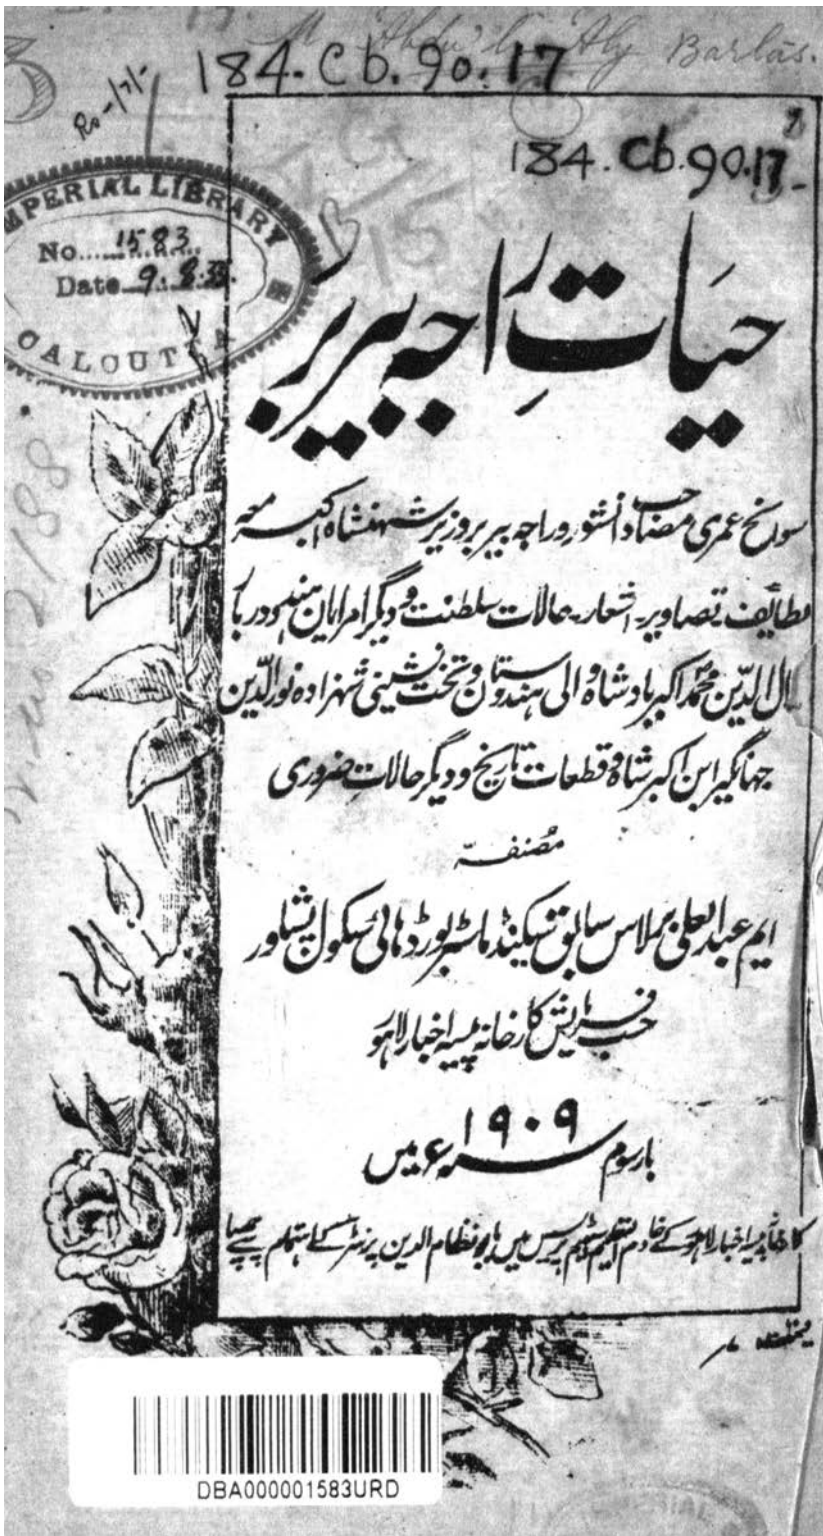 M. 'Abdu'l 'Aly Barlās.
184. Cb. 90. 17
Rs -/7/-
184. Cb. 90. 17
IMPERIAL LIBRARY
No. 1583
Date 9. 8. 38.
CALCUTTA
حیاتِ راجہ بیربر
سوانح عمری مصاحب دانشور راجہ بیربر وزیر شہنشاہ اکبر معہ
لطایف۔ تصاویر۔ اشعار۔ حالات سلطنت و دیگر امرایان ہنود دربار
جلال الدین محمد اکبر بادشاہ والی ہندوستان و تخت نشینی شہزادہ نور الدین
جہانگیر ابن اکبر شاہ و قطعات تاریخ و دیگر حالاتِ ضروری
مُصنفہ
ایم عبد العلی برلاس سابق سیکنڈ ماسٹر بورڈ ہائی سکول پشاور
حسب فرمایش کارخانہ پیسہ اخبار لاہور
بار سوم سنہ ۱۹۰۹ء میں
کارخانہ پیسہ اخبار لاہور کے خادم التعلیم سٹیم پریس میں بابو نظام الدین پرنٹر کے اہتمام سے چھپا
DBA000001583URD